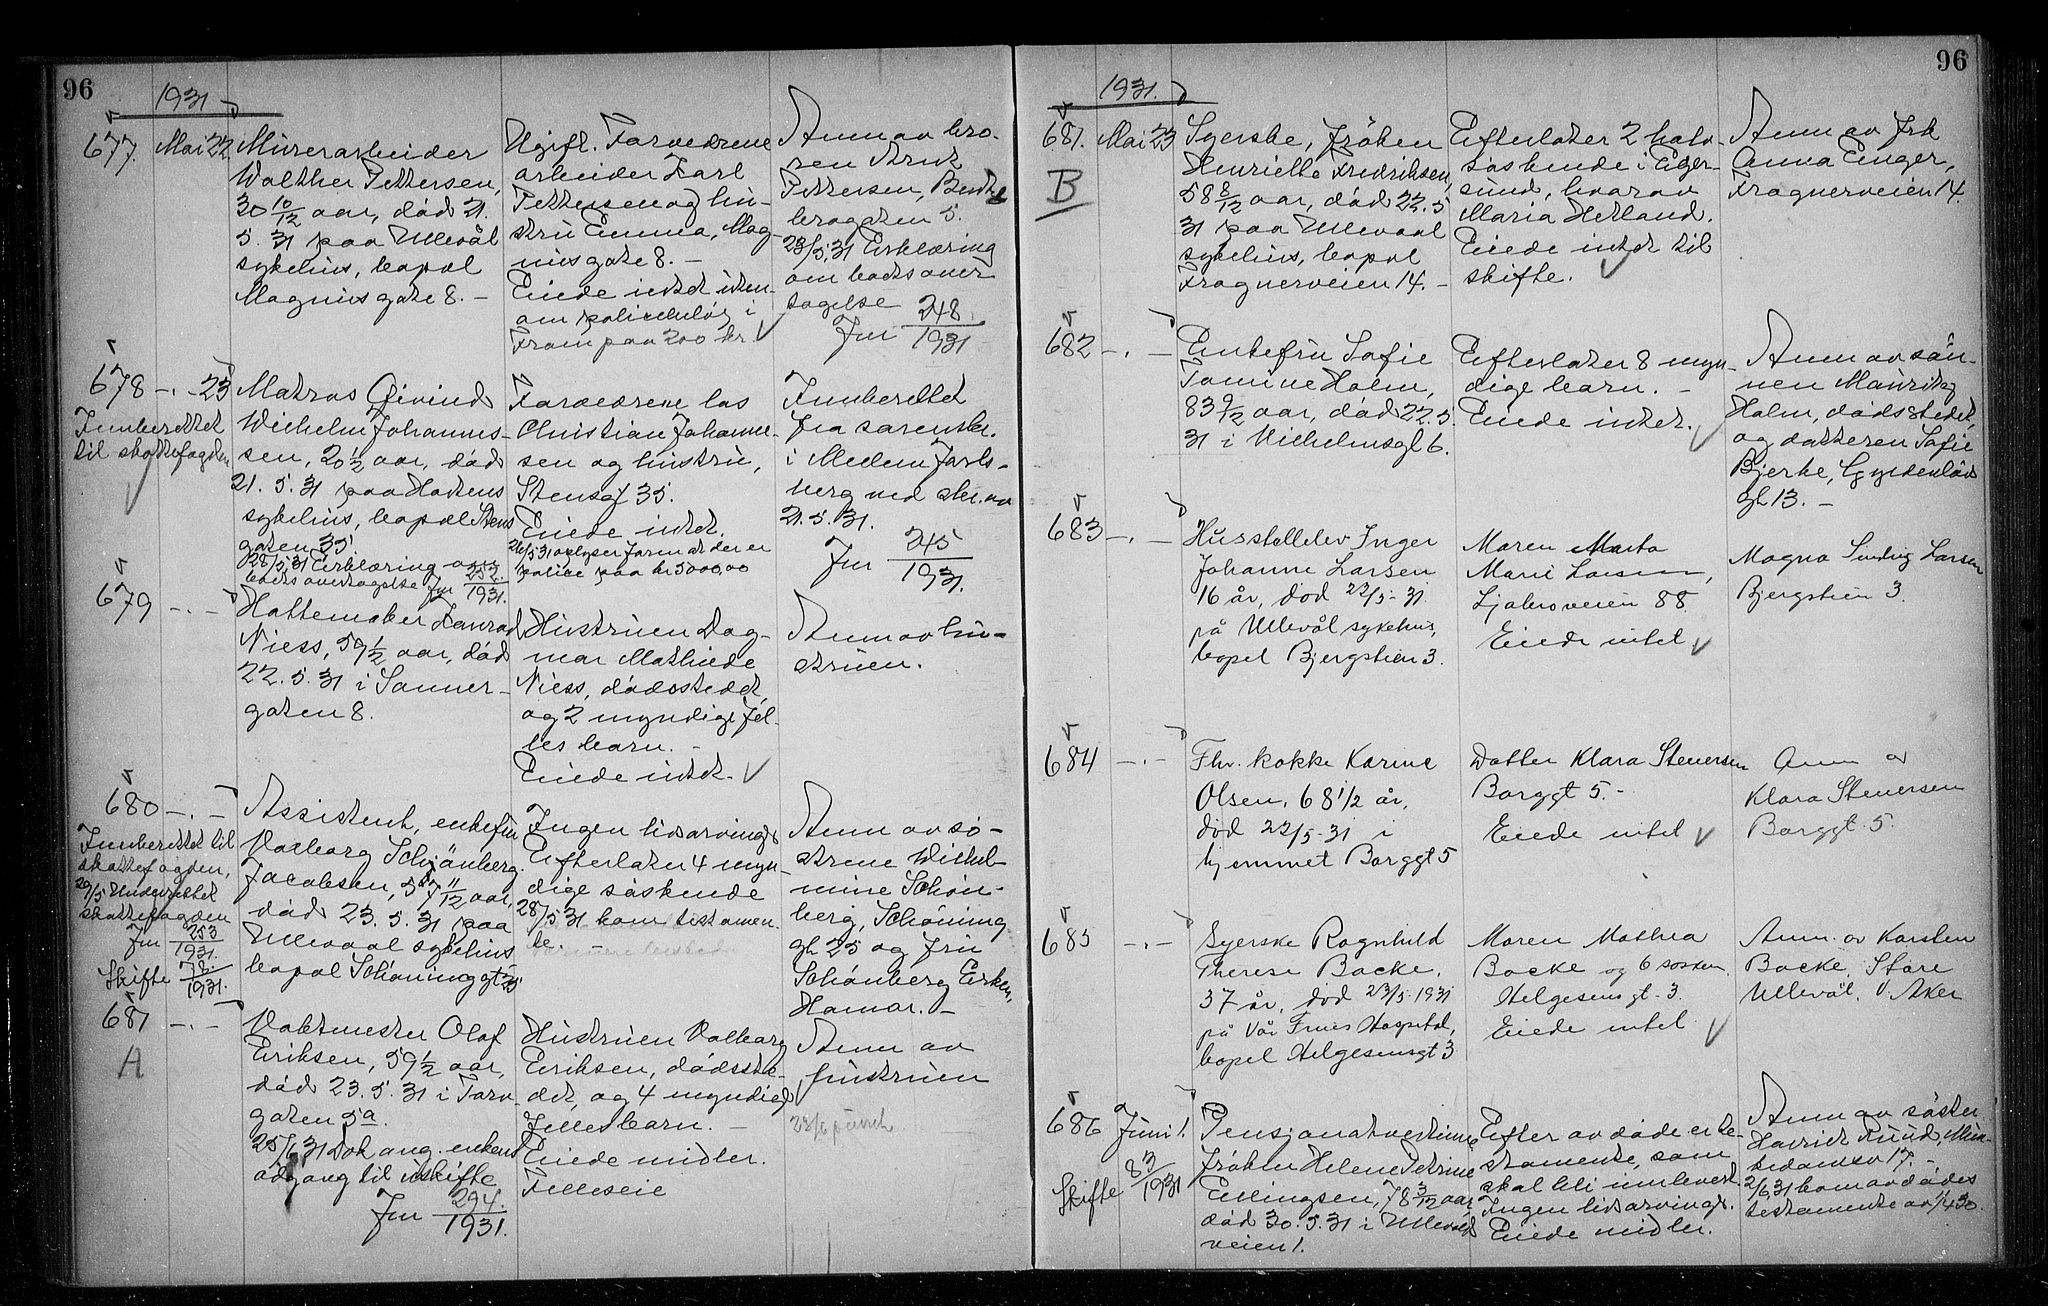 96
1931
677.
Mai 22
Murerarbeider
Walther Pettersen,
30 10/12 aar, död 21.
5. 31 paa Ullevål
sykehus, bopæl
Magnus gate 8. –
Ugift. Forældrene
arbeider Karl
Pettersen og hu-
stru Emma, Mag-
nus gate 8. –
Eiede intet uten-
om polise i
Fram paa 200 kr.
Anm av bro-
ren
Pettersen,
brogaten 5.
23/5.31 Erklæring
om boets over
tagelse
Jnr 248/1931
678 –.– 23
Innberettet
til skattefogden
Matros Öivind
Wilhelm Johannes-
sen, 20 1/2 aar, död
21. 5. 31 paa Hortens
sykehus, bopæl Stens
gaten 35
28/5.31 Erklæring om
boets overtagelse Jnr 252/1931.
Forældrene los
Christian Johannes-
sen og hustru,
Stensgt 35.
Eiede intet.
26/5 31 oplyser faren at der er
police paa kr 5000,00
Innberettet
fra sorenskr.
i Mellem Jarls-
berg ved skr. av
21. 5. 31.
Jnr 245/1931.
679 –.–
Hattemaker Konrad
Niess, 59 1/2 aar, död
22. 5. 31 i Sanner-
gaten 8.
Hustruen Dag-
mar Mathilde
Niess, dödsstedet,
og 2 myndige fel-
les barn. –
Eiede intet.
Anm av hu-
struen.
680 –.–
Innberettet til
skattefogden,
29/5 Underrettet
skattefogden
Jnr 253/1931.
Skifte 78/1931.
Assistent, enkefru
Valborg Schjönberg
Jacobsen, 57 11/12 aar,
död 23. 5. 31 paa
Ullevaal sykehus
bopæl Schöninggt 25
Ingen livsarving
Efterlater 4 myn-
dige söskende
28/5 31 kom testamen-
te. –
Anm av sö-
strene Wilhel-
mine Schön-
berg, Schöning
gt 25 og fru
Schönberg Eirken,
Hamar. –
681 –.–
A
Vaktmester Olof
Eriksen, 59 1/2 aar,
död 23. 5. 31 i Torv-
gaten 5a.
25/6 31 Dok ang. enkens
adgang til uskifte
Jnr 294/1931.
Hustruen Valborg
Eriksen, dödsste-
det, og 4 myndige
Fellesbarn. –
Eiede midler.
Felleseie
Anm av
hustruen
96
1931.
681.
B
Mai 23
Syerske, fröken
Henriette Fredriksen,
58 8/12 aar, död 22. 5
31 paa Ullevaal
sykehus, bopæl
Frognerveien 14. –
Efterlater 2 halv
söskende i Eger-
sund, hvorav
Maria Hetland.
Eiede intet til
skifte.
Anm av frk
Anna Enger,
Frognerveien 14.
682 –.–
Enkefru Sofie
Tomine Holm,
83 9/12 aar, död 22. 5
31 i Vilhelmsgt 6.
Efterlater 8 myn-
dige barn. –
Eiede intet.
Anm av sön-
nen Mauritz
Holm, dödsstedet,
og datteren Sofie
Bjerke, Gyldenlöves
gt 13. –
683 –.–
Husstellelev Inger
Johanne Larsen
16 år, död 22/5-31
på Ullevål sykehus,
bopel Bjergstien 3.
Moren Marta
Marie Larsen,
Ljabruveien 88.
Eiede intet
Magna Larsen
Bjergstien 3.
684 –.–
Fhv. kokke Karine
Olsen, 68 1/2 år,
död 22/5-31 i
hjemmet Borggt 5
Datter Klara Stenersen
Borggt 5. –
Eiede intet
Anm av
Klara Stenersen
Borggt. 5.
685 –.–
Syerske Ragnhild
Therese Bakke,
37 år, död 23/5-1931
på Vår Frues Hospital,
bopel Helgesensgt 3
Moren Mathea
Bakke og 6 sosken
Helgesensgt. 3.
Eiede intet
Anm. av Karsten
Bakke, Store
Ullevål, V. Aker
686
Juni 1.
Skifte 83/1931
Pensjonatvertinne
fröken Helene Petrine
Ellingsen, 78 3/12 aar
död 30. 5. 31 i Ullevåls
veien 1.
Efter avdöde er te-
stamente, som
skal bli innlevert.
Ingen livsarving.
Eiede midler.
Anm av söster
Ruud, Mun-
kedamsv 17. –
2/6 31 kom avdödes
testamente av 1/4 30.